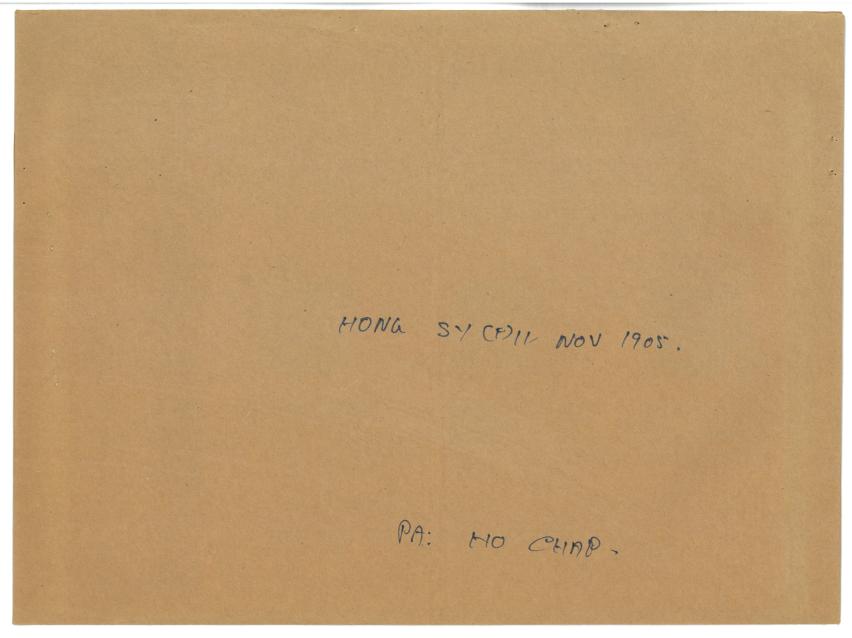 HONG SY (P) 11 NOV 1905.
PA: HO CHAP.